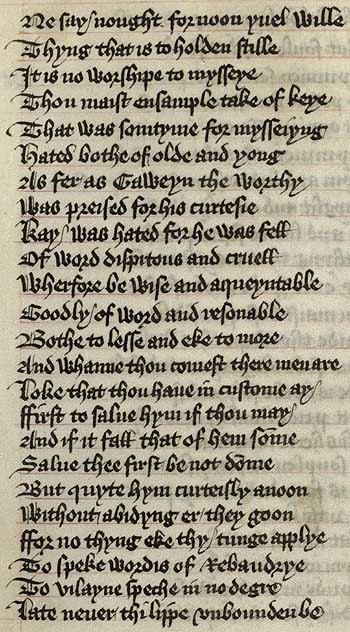 Ne say / nought for noon yuel wille
Thyng that is to holden stille
It is no worshipe to mysseye
Thou maist ensample take of keye
That was somtyme for mysseiyng
Hated bothe of olde and yong
As fer as Gaweyn the worthy
Was preised for his curtesie
Kay / was hated for he was fell
Of word dispitous and cruell
Wherfore be wise and aqueyntable
Goodly / of word and resonable
Bothe to lesse and eke to more
And whanne thou comest there men are
Loke that thou haue in custome ay /
ffirst to salue hym if thou may /
And if it fall that of hem some
Salue thee first be not dome
But quyte hym curteisly anoon
Without abidyng er they goon
ffor no thyng eke thy / tunge applye
To speke wordis of Rebaudrye
To vilayne speche in no degre
Late neuer thi lippe vnbounden be